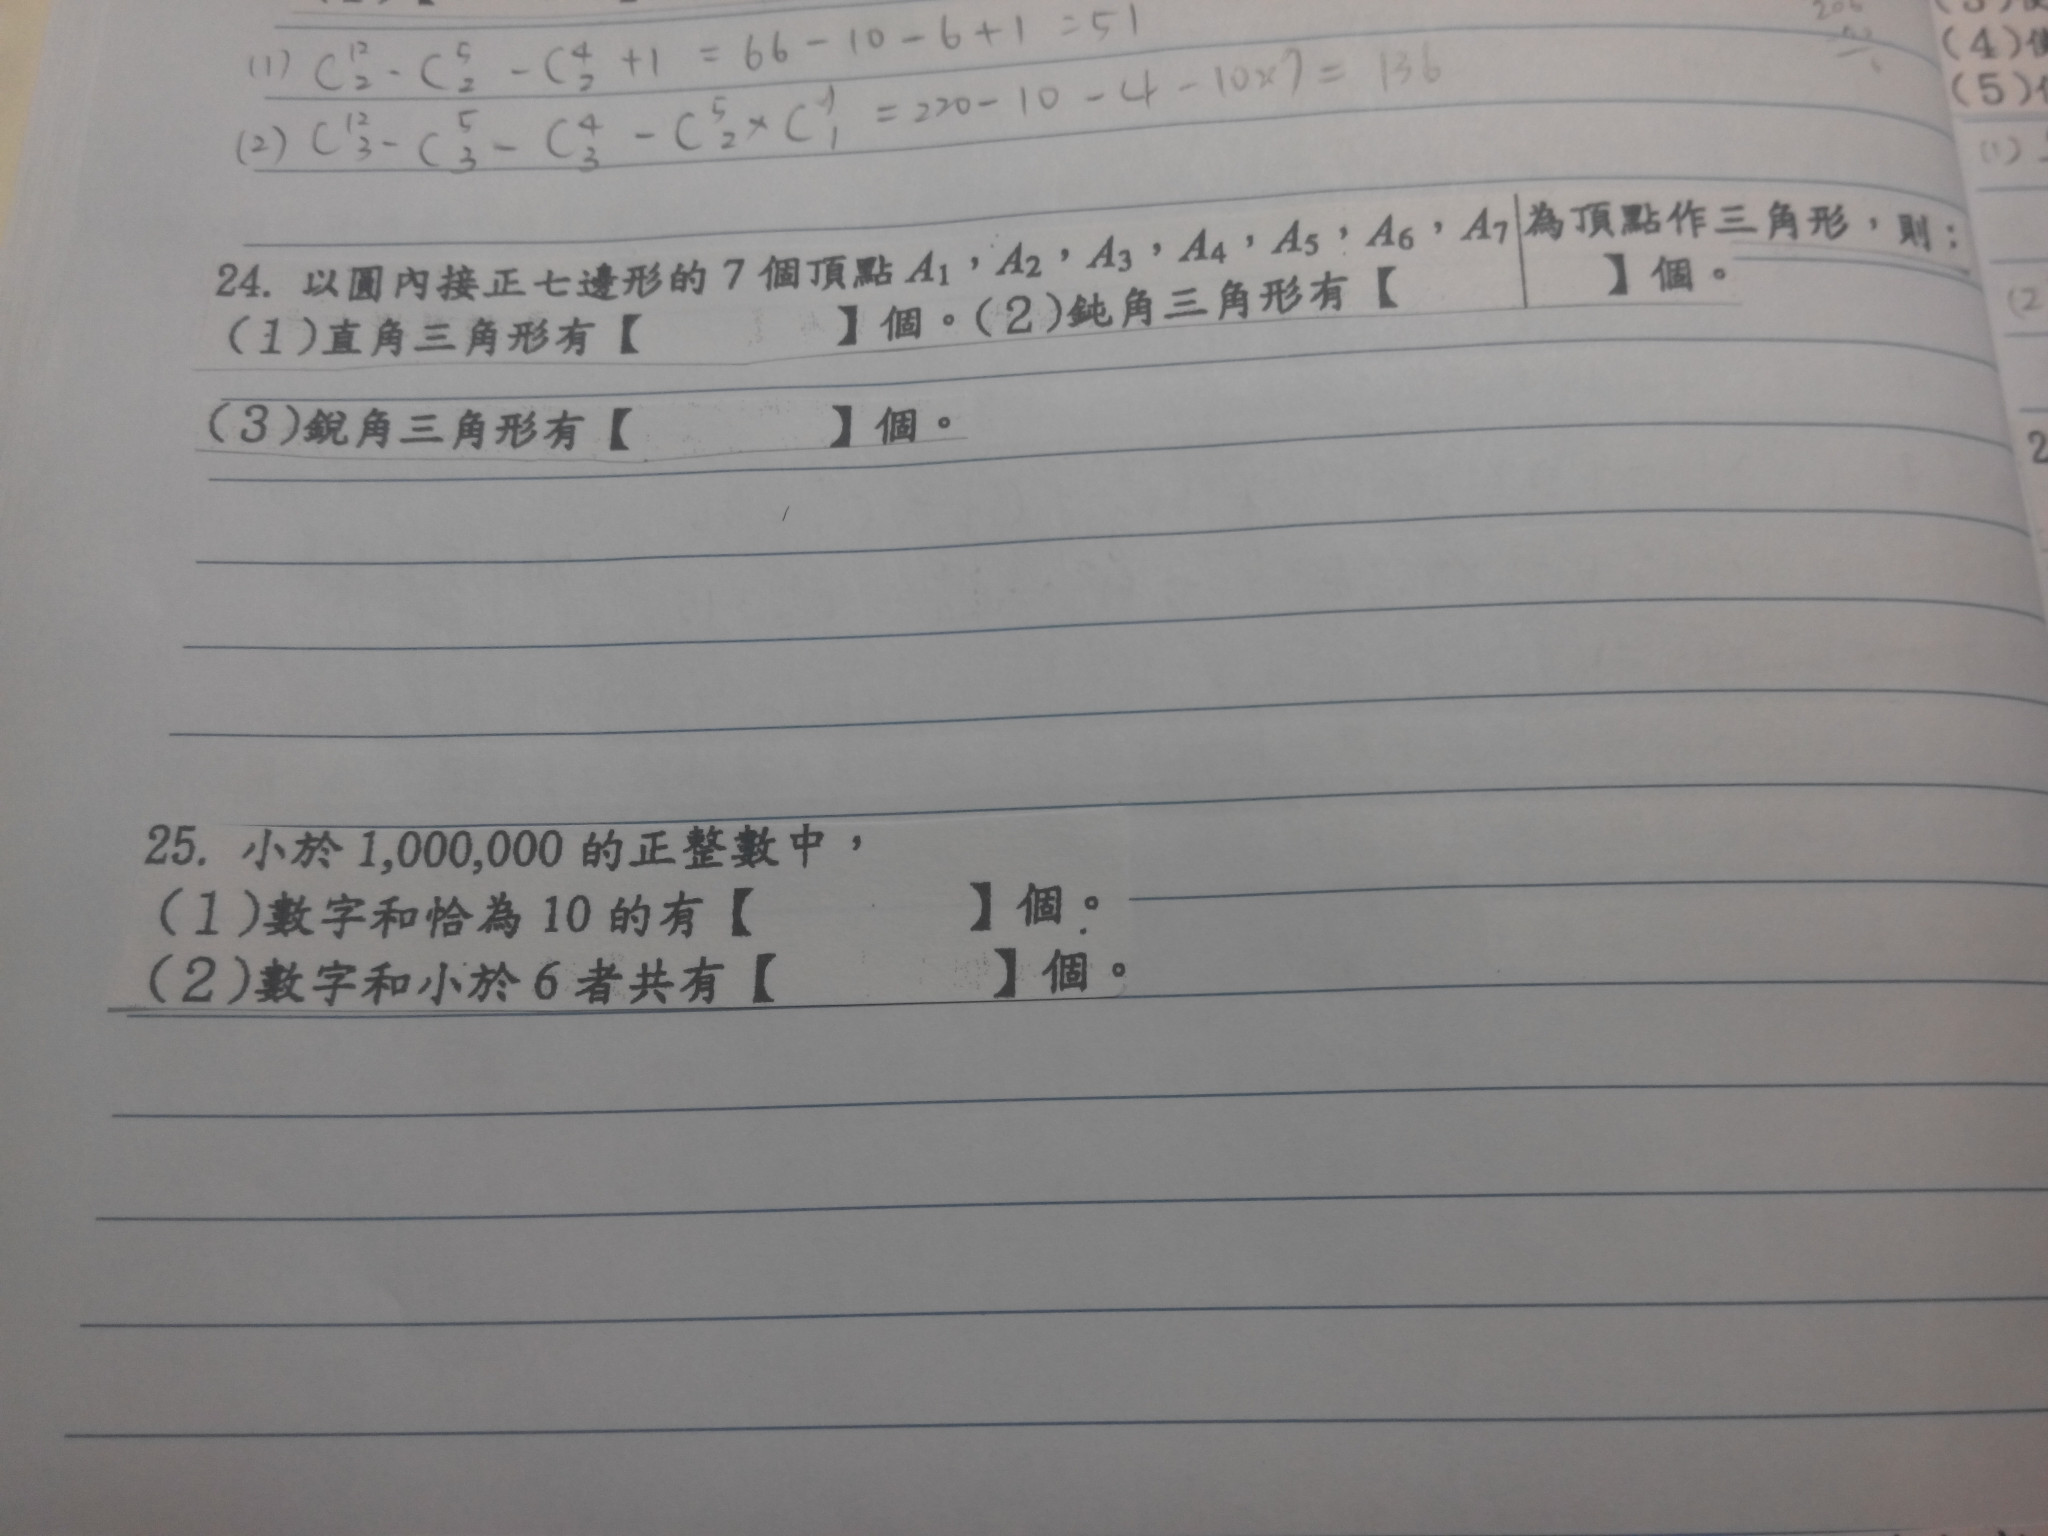 (1) C¹²₂ - C⁵₂ - C⁴₂ + 1 = 66 - 10 - 6 + 1 = 51
(2) C¹²₃ - C⁵₃ - C⁴₃ - C⁵₂ × C⁷₁ = 220 - 10 - 4 - 10×7 = 136
24. 以圓內接正七邊形的 7 個頂點 A₁，A₂，A₃，A₄，A₅，A₆，A₇ 為頂點作三角形，則：
(1)直角三角形有【　　】個。(2)鈍角三角形有【　　】個。
(3)銳角三角形有【　　】個。
25. 小於 1,000,000 的正整數中，
(1)數字和恰為 10 的有【　　】個。
(2)數字和小於 6 者共有【　　】個。
(4)
(5)
(1)
(2
2